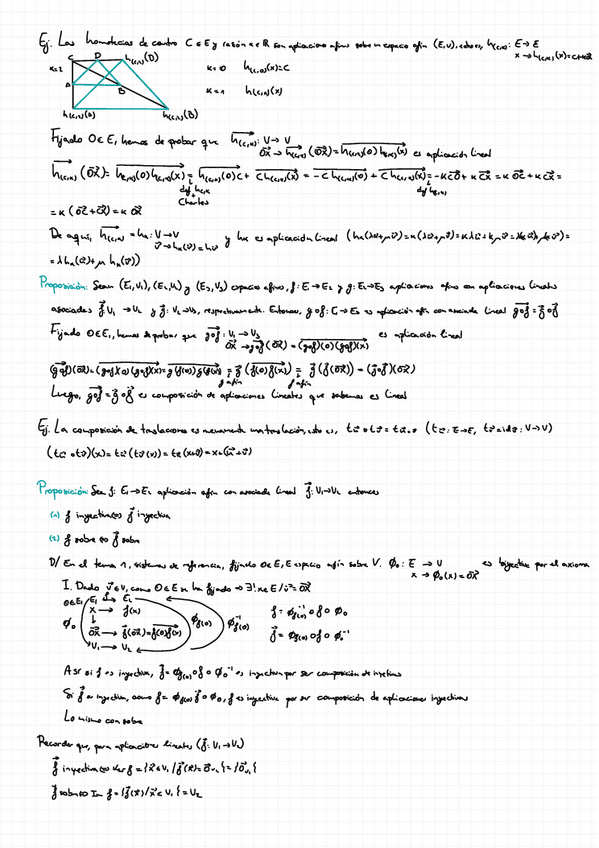 Ej. Las homotecias de centro C ∈ E y razón κ ∈ R son aplicaciones afines sobre un espacio afín (E,V), esto es, h(C,κ): E → E
x → h(C,κ)(x) = C + κC⃗x
κ=2 C D h(C,κ)(D) κ=0 h(C,0)(x)=C
A B κ=1 h(C,1)(x)
h(C,κ)(A) h(C,κ)(B)
Fijado O ∈ E, hemos de probar que h(C,κ)⃗: V → V
OX⃗ → h(C,κ)⃗(OX⃗) = h(C,κ)(O)h(C,κ)(x)⃗ es aplicación lineal
h(C,κ)⃗(OX⃗) = h(C,κ)(O)h(C,κ)(x)⃗ = h(C,κ)(O)C⃗ + C h(C,κ)(x)⃗ = -C h(C,κ)(O)⃗ + C h(C,κ)(x)⃗ = -κCO⃗ + κCX⃗ = κOC⃗ + κCX⃗ =
def h(C,κ) + Charles def h(C,κ)
= κ(OC⃗ + CX⃗) = κOX⃗
De aquí, h(C,κ)⃗ = hκ: V → V y hκ es aplicación lineal (hκ(λu⃗+μv⃗) = κ(λu⃗+μv⃗) = κλu⃗ + κμv⃗ =
v⃗ → hκ(v⃗) = κv⃗
= λhκ(u⃗) + μhκ(v⃗))
Proposición: Sean (E₁,V₁), (E₂,V₂) y (E₃,V₃) espacios afines, f: E₁→E₂ y g: E₂→E₃ aplicaciones afines con aplicaciones lineales
asociadas f⃗: V₁→V₂ y g⃗: V₂→V₃, respectivamente. Entonces, g∘f: E₁→E₃ es aplicación afín con asociada lineal g∘f⃗ = g⃗∘f⃗
Fijado O∈E₁, hemos de probar que g∘f⃗: V₁ → V₃ es aplicación lineal
OX⃗ → g∘f⃗(OX⃗) = (g∘f)(O)(g∘f)(x)⃗
(g∘f)⃗(OX⃗) = (g∘f)(O)(g∘f)(x)⃗ = g(f(O))g(f(x))⃗ = g⃗(f(O)f(x)⃗) = g⃗(f⃗(OX⃗)) = (g⃗∘f⃗)(OX⃗)
g afín f afín
Luego, g∘f⃗ = g⃗∘f⃗ es composición de aplicaciones lineales que sabemos es lineal
Ej. La composición de traslaciones es nuevamente una traslación, esto es, tu⃗ ∘ tv⃗ = tu⃗+v⃗ (tu⃗: E→E, tu⃗⃗ = id: V→V)
(tu⃗ ∘ tv⃗)(x) = tu⃗(tv⃗(x)) = tu⃗(x+v⃗) = x+(u⃗+v⃗)
Proposición: Sea f: E₁→E₂ aplicación afín con asociada lineal f⃗: V₁→V₂ entonces
(1) f inyectiva ⇔ f⃗ inyectiva
(2) f sobre ⇔ f⃗ sobre
D/ En el tema 1, sistemas de referencia, fijado O∈E, E espacio afín sobre V. ϕ₀: E → V es biyectiva por el axioma
x → ϕ₀(x) = OX⃗
I. Dado v⃗∈V, como O∈E se ha fijado ⇒ ∃! x∈E / v⃗ = OX⃗
O∈E₁ E₁ f→ E₂
x → f(x) f = ϕ⁻¹f(O) ∘ f⃗ ∘ ϕ₀
ϕ₀ ↓ ϕf(O) ϕ⁻¹f(O)
OX⃗ → f⃗(OX⃗) = f(O)f(x)⃗ f⃗ = ϕf(O) ∘ f ∘ ϕ₀⁻¹
V₁ → V₂
Así si f es inyectiva, f⃗ = ϕf(O) ∘ f ∘ ϕ₀⁻¹ es inyectiva por ser composición de inyectivas
Si f⃗ es inyectiva, como f = ϕ⁻¹f(O) ∘ f⃗ ∘ ϕ₀, f es inyectiva por ser composición de aplicaciones inyectivas
Lo mismo con sobre
Recordar que, para aplicaciones lineales (f⃗: V₁→V₂)
f⃗ inyectiva ⇔ Ker f = {x⃗∈V₁ / f⃗(x⃗) = 0⃗V₂} = {0⃗V₁}
f⃗ sobre ⇔ Im f = {f⃗(x⃗) / x⃗∈V₁} = V₂